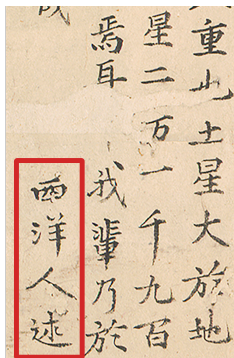 重此土星大於地
星二万一千九百
焉耳　我輩乃於
西洋人述